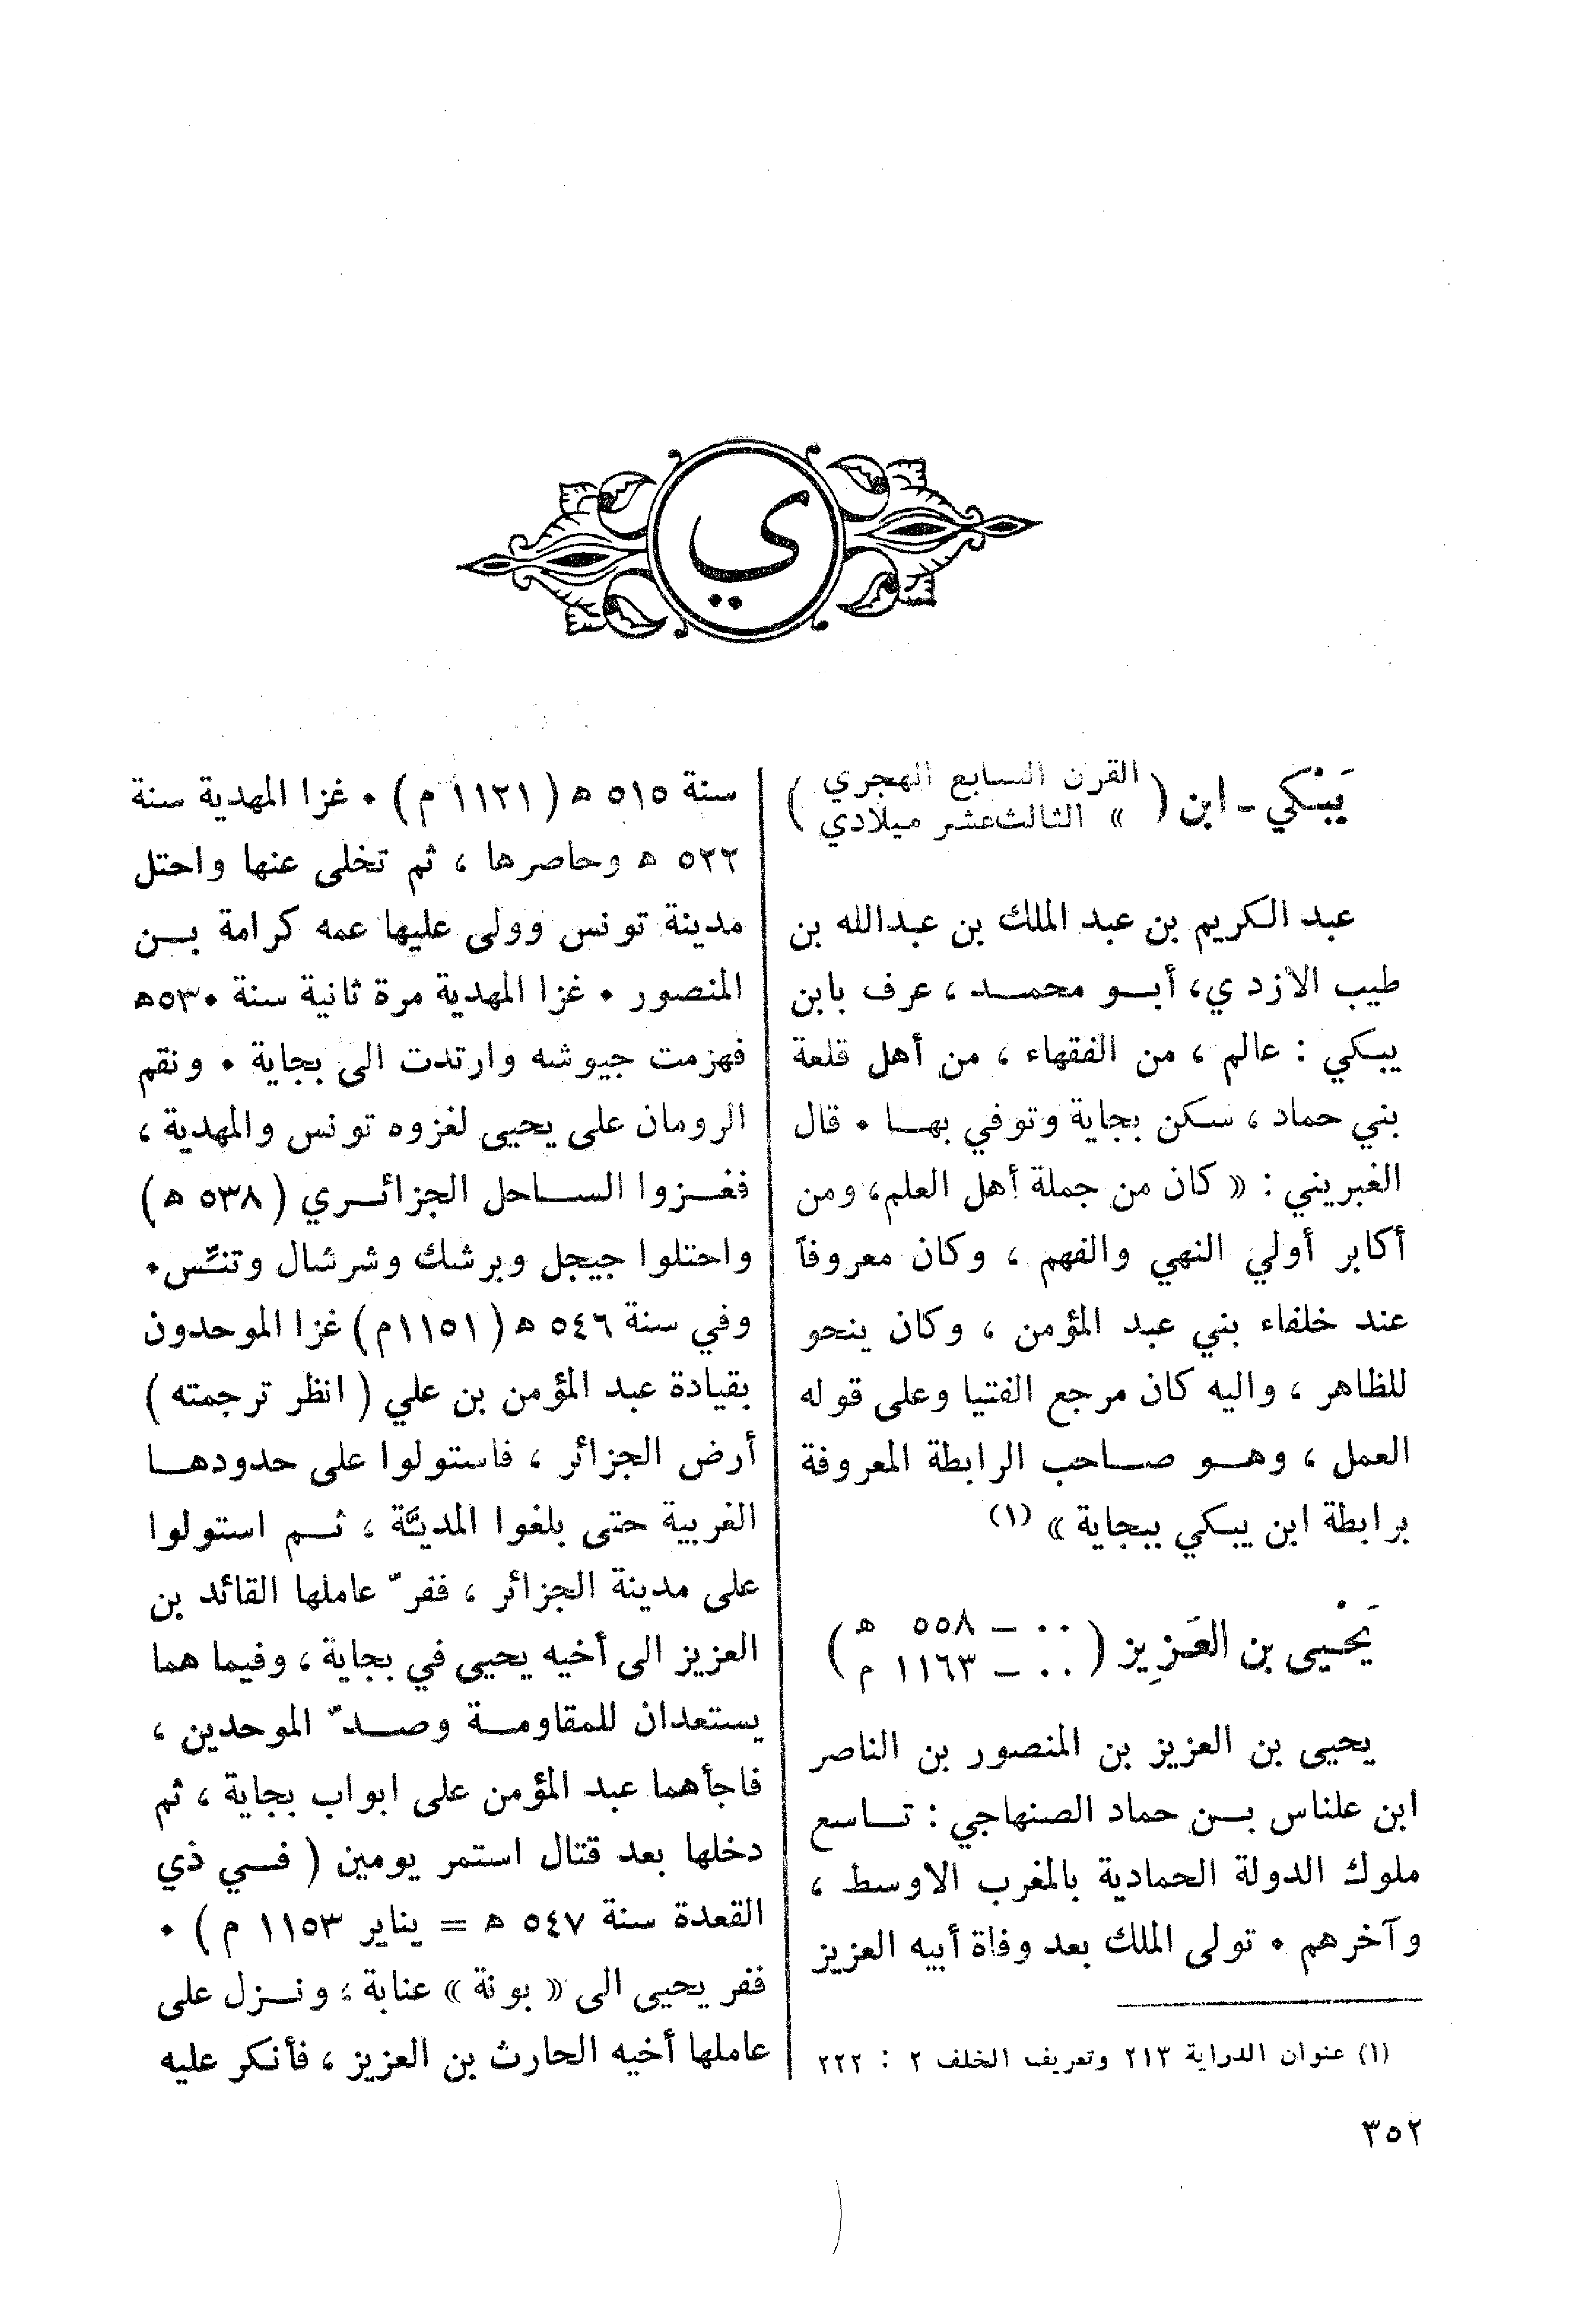 ي
يَبْكي ـ ابن ( القرن السابع الهجري
» الثالث عشر ميلادي )
عبد الكريم بن عبد الملك بن عبدالله بن
طيب الازدي، أبـو محمـد ، عرف بابن
يبكي : عالم ، من الفقهاء ، من أهل قلعة
بني حماد ، سكن بجاية وتوفي بهـا ٠ قال
الغبريني : « كان من جملة أهل العلم، ومن
أكابر أولي النهي والفهم ، وكان معروفاً
عند خلفاء بني عبد المؤمن ، وكان ينحو
للظاهر ، واليه كان مرجع الفتيا وعلى قوله
العمل ، وهـو صـاحب الرابطة المعروفة
برابطة ابن يبكي ببجاية » (١)
يَحْيى بن العَزِيز ( ٠٠ ــ ٥٥٨ ه
٠٠ ــ ١١٦٣ م )
يحيى بن العزيز بن المنصور بن الناصر
ابن علناس بـن حماد الصنهاجي : تـاسع
ملوك الدولة الحمادية بالمغرب الاوسط ،
وآخرهم ٠ تولى الملك بعد وفاة أبيه العزيز
(١) عنوان الدراية ٢١٣ وتعريف الخلف ٢ : ٢٢٢
سنة ٥١٥ ه ( ١١٢١ م ) ٠ غزا المهدية سنة
٥٢٢ ه وحاصرها ، ثم تخلى عنها واحتل
مدينة تونس وولى عليها عمه كرامة بـن
المنصور ٠ غزا المهدية مرة ثانية سنة ٥٣٠ه
فهزمت جيوشه وارتدت الى بجاية ٠ ونقم
الرومان على يحيى لغزوه تونس والمهدية ،
فغـزوا السـاحل الجزائـري ( ٥٣٨ ه )
واحتلوا جيجل وبرشك وشرشال وتنَّس٠
وفي سنة ٥٤٦ ه ( ١١٥١م ) غزا الموحدون
بقيادة عبد المؤمن بن علي ( انظر ترجمته )
أرض الجزائر ، فاستولوا على حدودهـا
الغربية حتى بلغوا المديَّة ، ثـم استولوا
على مدينة الجزائر ، ففرّ عاملها القائد بن
العزيز الى أخيه يحيى في بجاية ، وفيما هما
يستعدان للمقاومـة وصـدّ الموحدين ،
فاجأهما عبد المؤمن على ابواب بجاية ، ثم
دخلها بعد قتال استمر يومين ( فـي ذي
القعدة سنة ٥٤٧ ه = يناير ١١٥٣ م ) ٠
ففر يحيى الى « بونة » عنابة ، ونـزل على
عاملها أخيه الحارث بن العزيز ، فأنكر عليه
٣٥٢